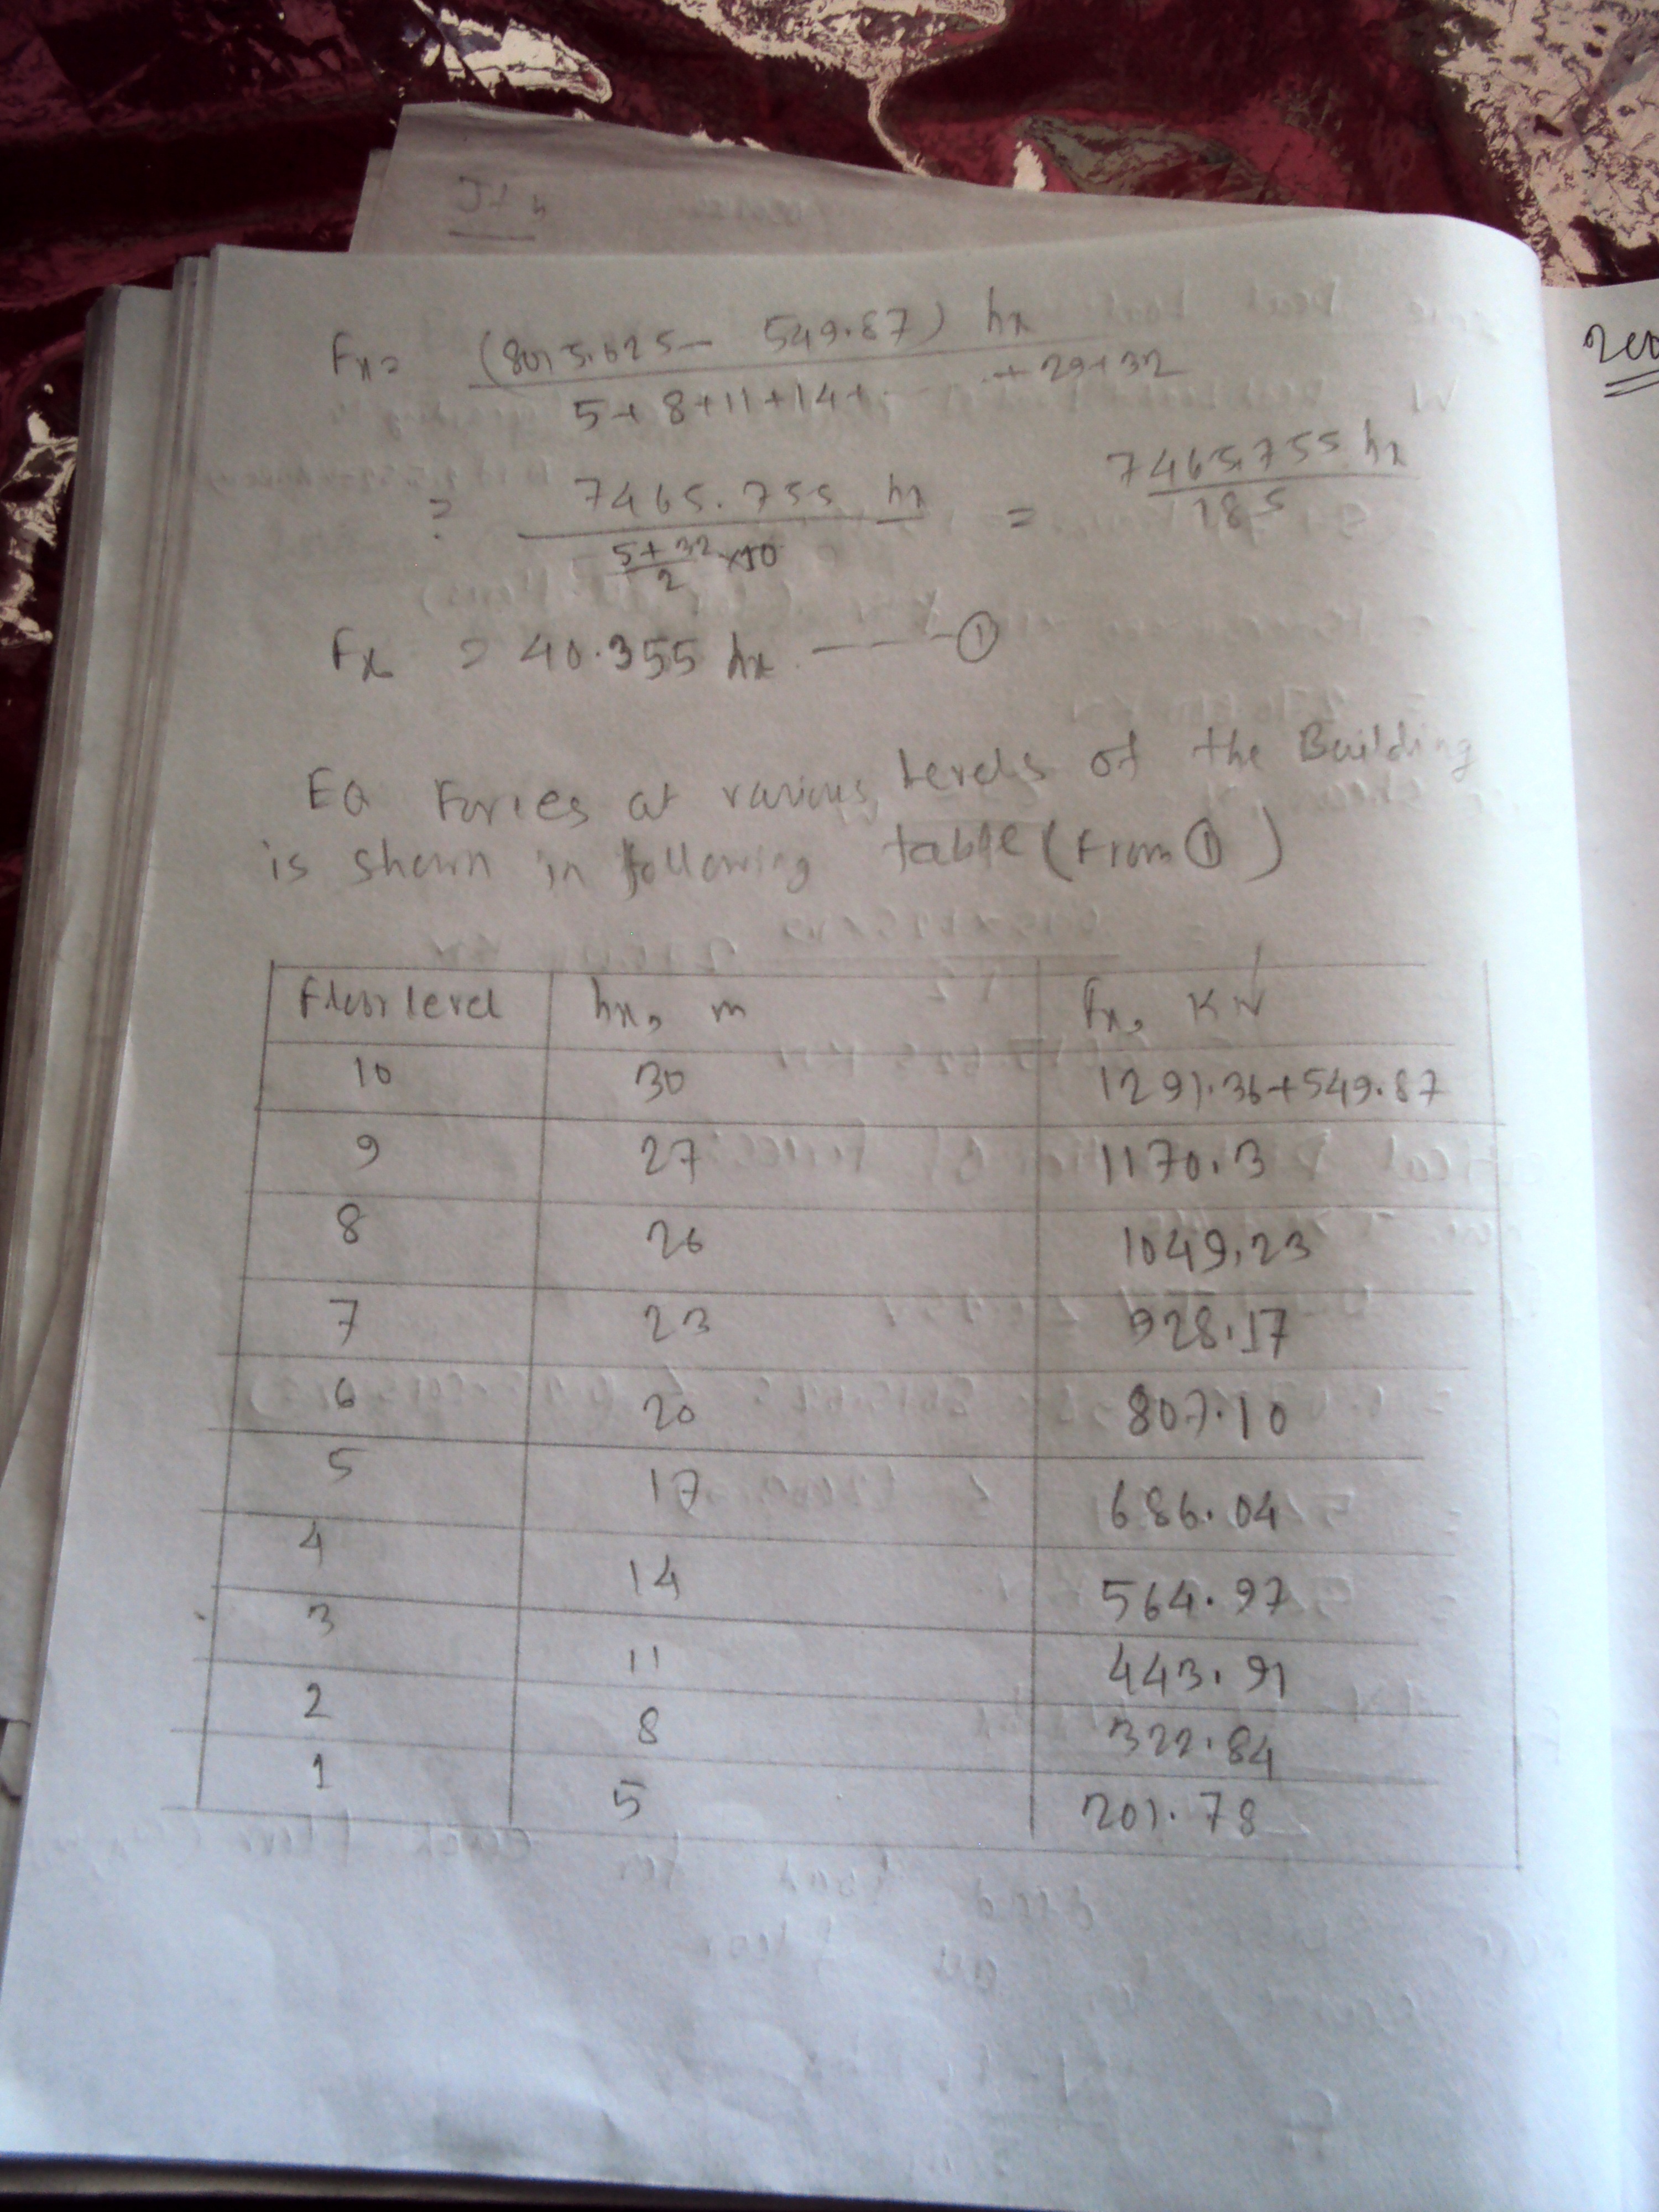 Fx = (8015.625 - 549.87) hx / 5+8+11+14+ - - - .+29+32
= 7465.755 hx / 5+32/2 x10 = 7465.755 hx / 185
Fx = 40.355 hx ------ ①
EQ Forces at various Levels of the Building
is shown in following table (From ①)
Floor level hx, m Fx, KN
10 30 1291.36+549.87
9 27 1170.3
8 26 1049.23
7 23 928.17
6 20 807.10
5 17 686.04
4 14 564.97
3 11 443.91
2 8 322.84
1 5 201.78